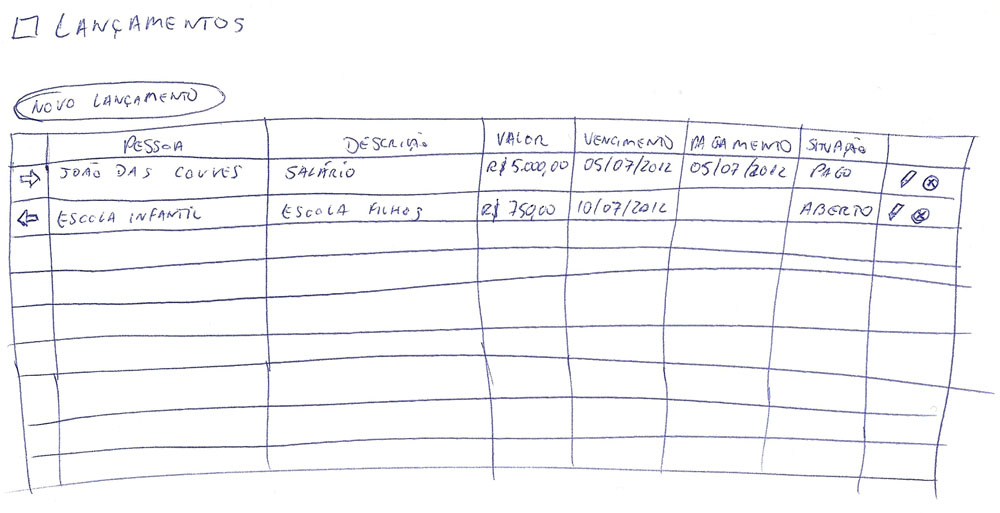 LANÇAMENTOS
NOVO LANÇAMENTO
PESSOA DESCRIÇÃO VALOR VENCIMENTO PAGAMENTO SITUAÇÃO
JOÃO DAS COUVES SALÁRIO R$ 5.000,00 05/07/2012 05/07/2012 PAGO
ESCOLA INFANTIL ESCOLA FILHOS R$ 750,00 10/07/2012 ABERTO